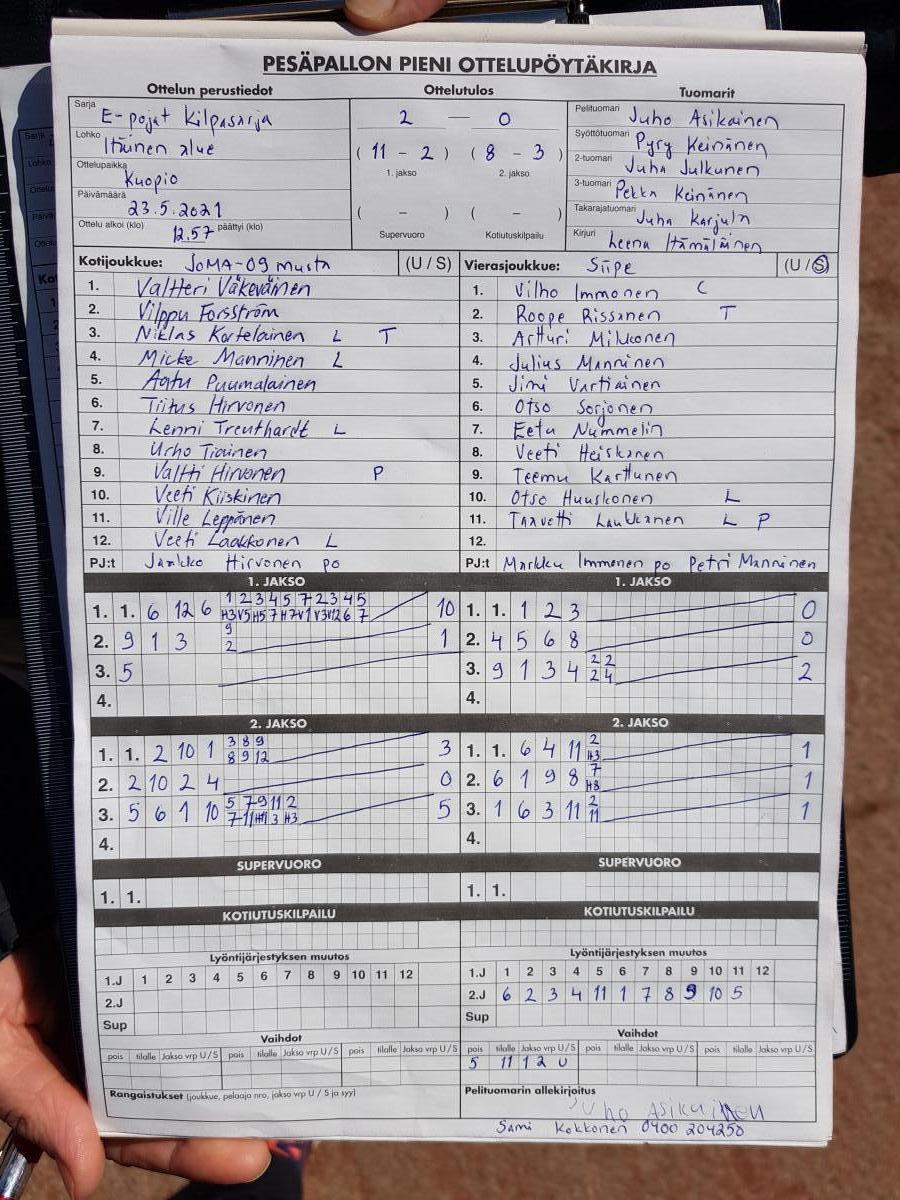 PESÄPALLON PIENI OTTELUPÖYTÄKIRJA
Ottelun perustiedot
Ottelutulos
Tuomarit
Sarja E-pojat Kilpasarja
Lohko Itäinen alue
Ottelupaikka Kuopio
Päivämäärä 23.5.2021
Ottelu alkoi (klo) 12.57 päättyi (klo)
2 — 0
( 11 - 2 ) ( 8 - 3 )
1. jakso 2. jakso
( - ) ( - )
Supervuoro Kotiutuskilpailu
Pelituomari Juho Asikainen
Syöttötuomari Pyry Keinänen
2-tuomari Juha Julkunen
3-tuomari Pekka Keinänen
Takarajatuomari Juha Karjula
Kirjuri Leena Itämäläinen
Kotijoukkue: JoMA-09 musta (U / S)
1. Valtteri Väkeväinen
2. Vilppu Forsström
3. Niklas Kortelainen L T
4. Micke Manninen L
5. Aatu Puumalainen
6. Tiitus Hirvonen
7. Lenni Treuthardt L
8. Urho Tiainen
9. Valtti Hirvonen P
10. Veeti Kiiskinen
11. Ville Leppänen
12. Veeti Laakkonen L
PJ:t Jarkko Hirvonen po
Vierasjoukkue: Siipe (U / S)
1. Vilho Immonen C
2. Roope Rissanen T
3. Artturi Mikkonen
4. Julius Manninen
5. Jimi Vartiainen
6. Otso Sorjonen
7. Eetu Nummelin
8. Veeti Heiskanen
9. Teemu Karttunen
10. Otso Huuskonen L
11. Taavetti Laukkanen L P
12.
PJ:t Markku Immonen po Petri Manninen
1. JAKSO
1 2 3 4 5 7 2 3 4 5
1. 1. 6 12 6 H3 V5 H5 7 H7 V1 V3 V12 6 7 10
9
2. 9 1 3 2 1
3. 5
4.
1. JAKSO
1. 1. 1 2 3 0
2. 4 5 6 8 0
2 2
3. 9 1 3 4 2 4 2
4.
2. JAKSO
3 8 9
1. 1. 2 10 1 8 9 12 3
2. 2 10 2 4 0
5 7 9 11 2
3. 5 6 1 10 7 11 H11 3 H3 5
4.
2. JAKSO
2
1. 1. 6 4 11 H3 1
7
2. 6 1 9 8 H8 1
2
3. 1 6 3 11 11 1
4.
SUPERVUORO
1. 1.
SUPERVUORO
1. 1.
KOTIUTUSKILPAILU
KOTIUTUSKILPAILU
Lyöntijärjestyksen muutos
1.J 1 2 3 4 5 6 7 8 9 10 11 12
2.J
Sup
Lyöntijärjestyksen muutos
1.J 1 2 3 4 5 6 7 8 9 10 11 12
2.J 6 2 3 4 11 1 7 8 9 10 5
Sup
Vaihdot
pois tilalle Jakso vrp U/S pois tilalle Jakso vrp U/S pois tilalle Jakso vrp U/S
Vaihdot
pois tilalle Jakso vrp U/S pois tilalle Jakso vrp U/S pois tilalle Jakso vrp U/S
5 11 1 2 U
Rangaistukset (joukkue, pelaaja nro, jakso vrp U / S ja syy)
Pelituomarin allekirjoitus
Juho Asikainen
Sami Kokkonen 0400 204250